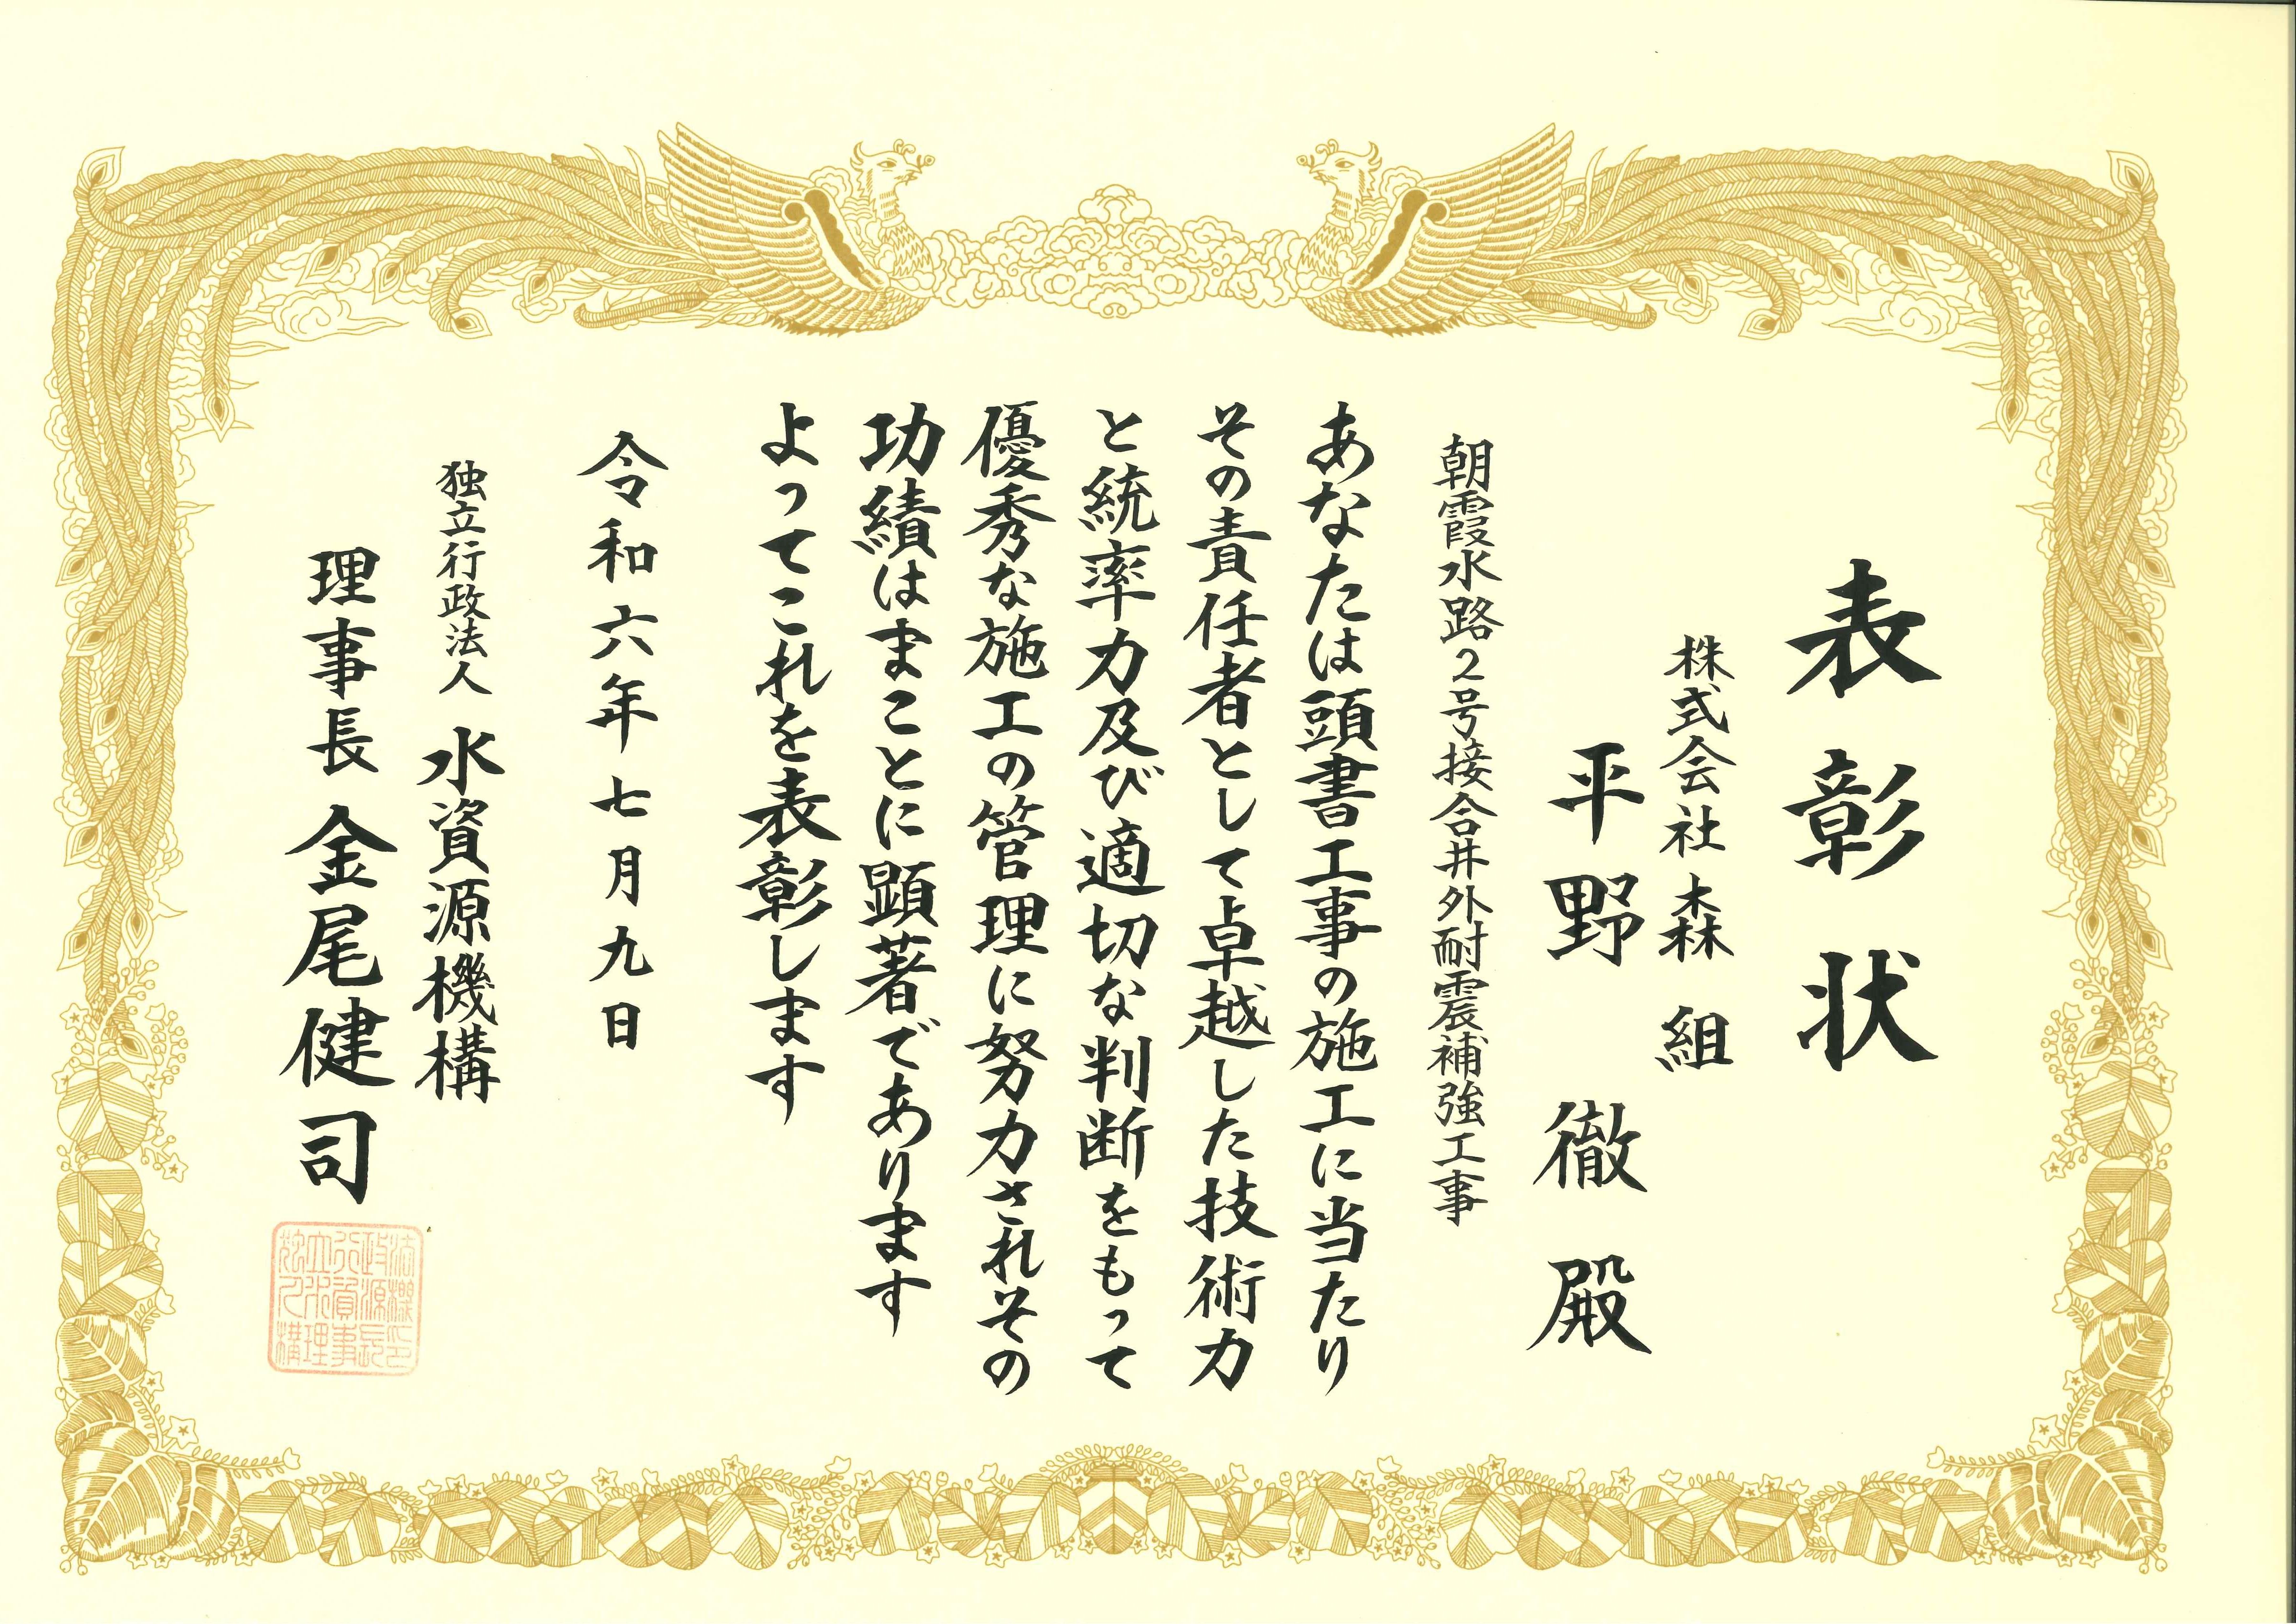 表彰状
株式会社森組
平野徹殿
朝霞水路2号接合井外耐震補強工事
あなたは頭書工事の施工に当たり
その責任者として卓越した技術力
と統率力及び適切な判断をもって
優秀な施工の管理に努力されその
功績はまことに顕著であります
よってこれを表彰します
令和六年七月九日
独立行政法人 水資源機構
理事長 金尾健司